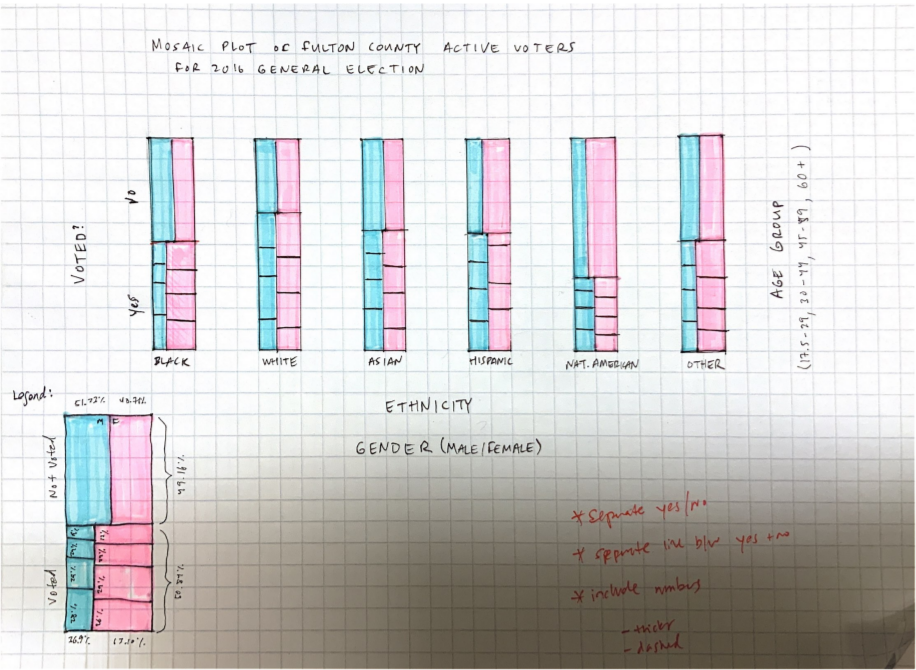 MOSAIC PLOT OF FULTON COUNTY ACTIVE VOTERS
FOR 2016 GENERAL ELECTION
VOTED?
NO
Yes
BLACK
WHITE
ASIAN
HISPANIC
NAT. AMERICAN
OTHER
AGE GROUP
(17.5-29, 30-44, 45-59, 60+)
ETHNICITY
GENDER (MALE/FEMALE)
Legend:
M F
Not Voted
49.16%
Voted
* Separate yes/no
* separate line b/w yes + no
* include numbers
- thicker
- dashed